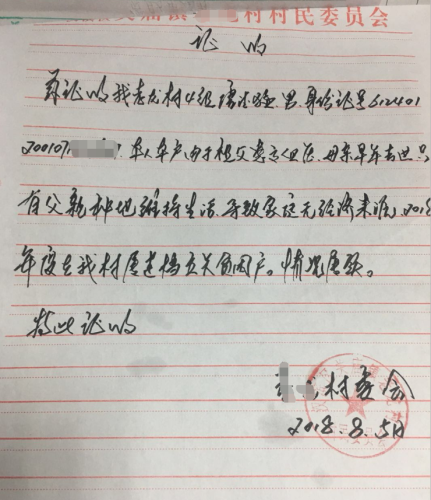 镇 村村民委员会
证 明
兹证明我 龙村4组 男,身份证号612401
200107 ,单人单户,由于祖父 ,母亲早年去世,只
有父亲种地维持生活,导致家庭无经济来源,2018
年度在我村属建档立卡贫困户。情况属实。
特此证明
村委会
2018.8.5日